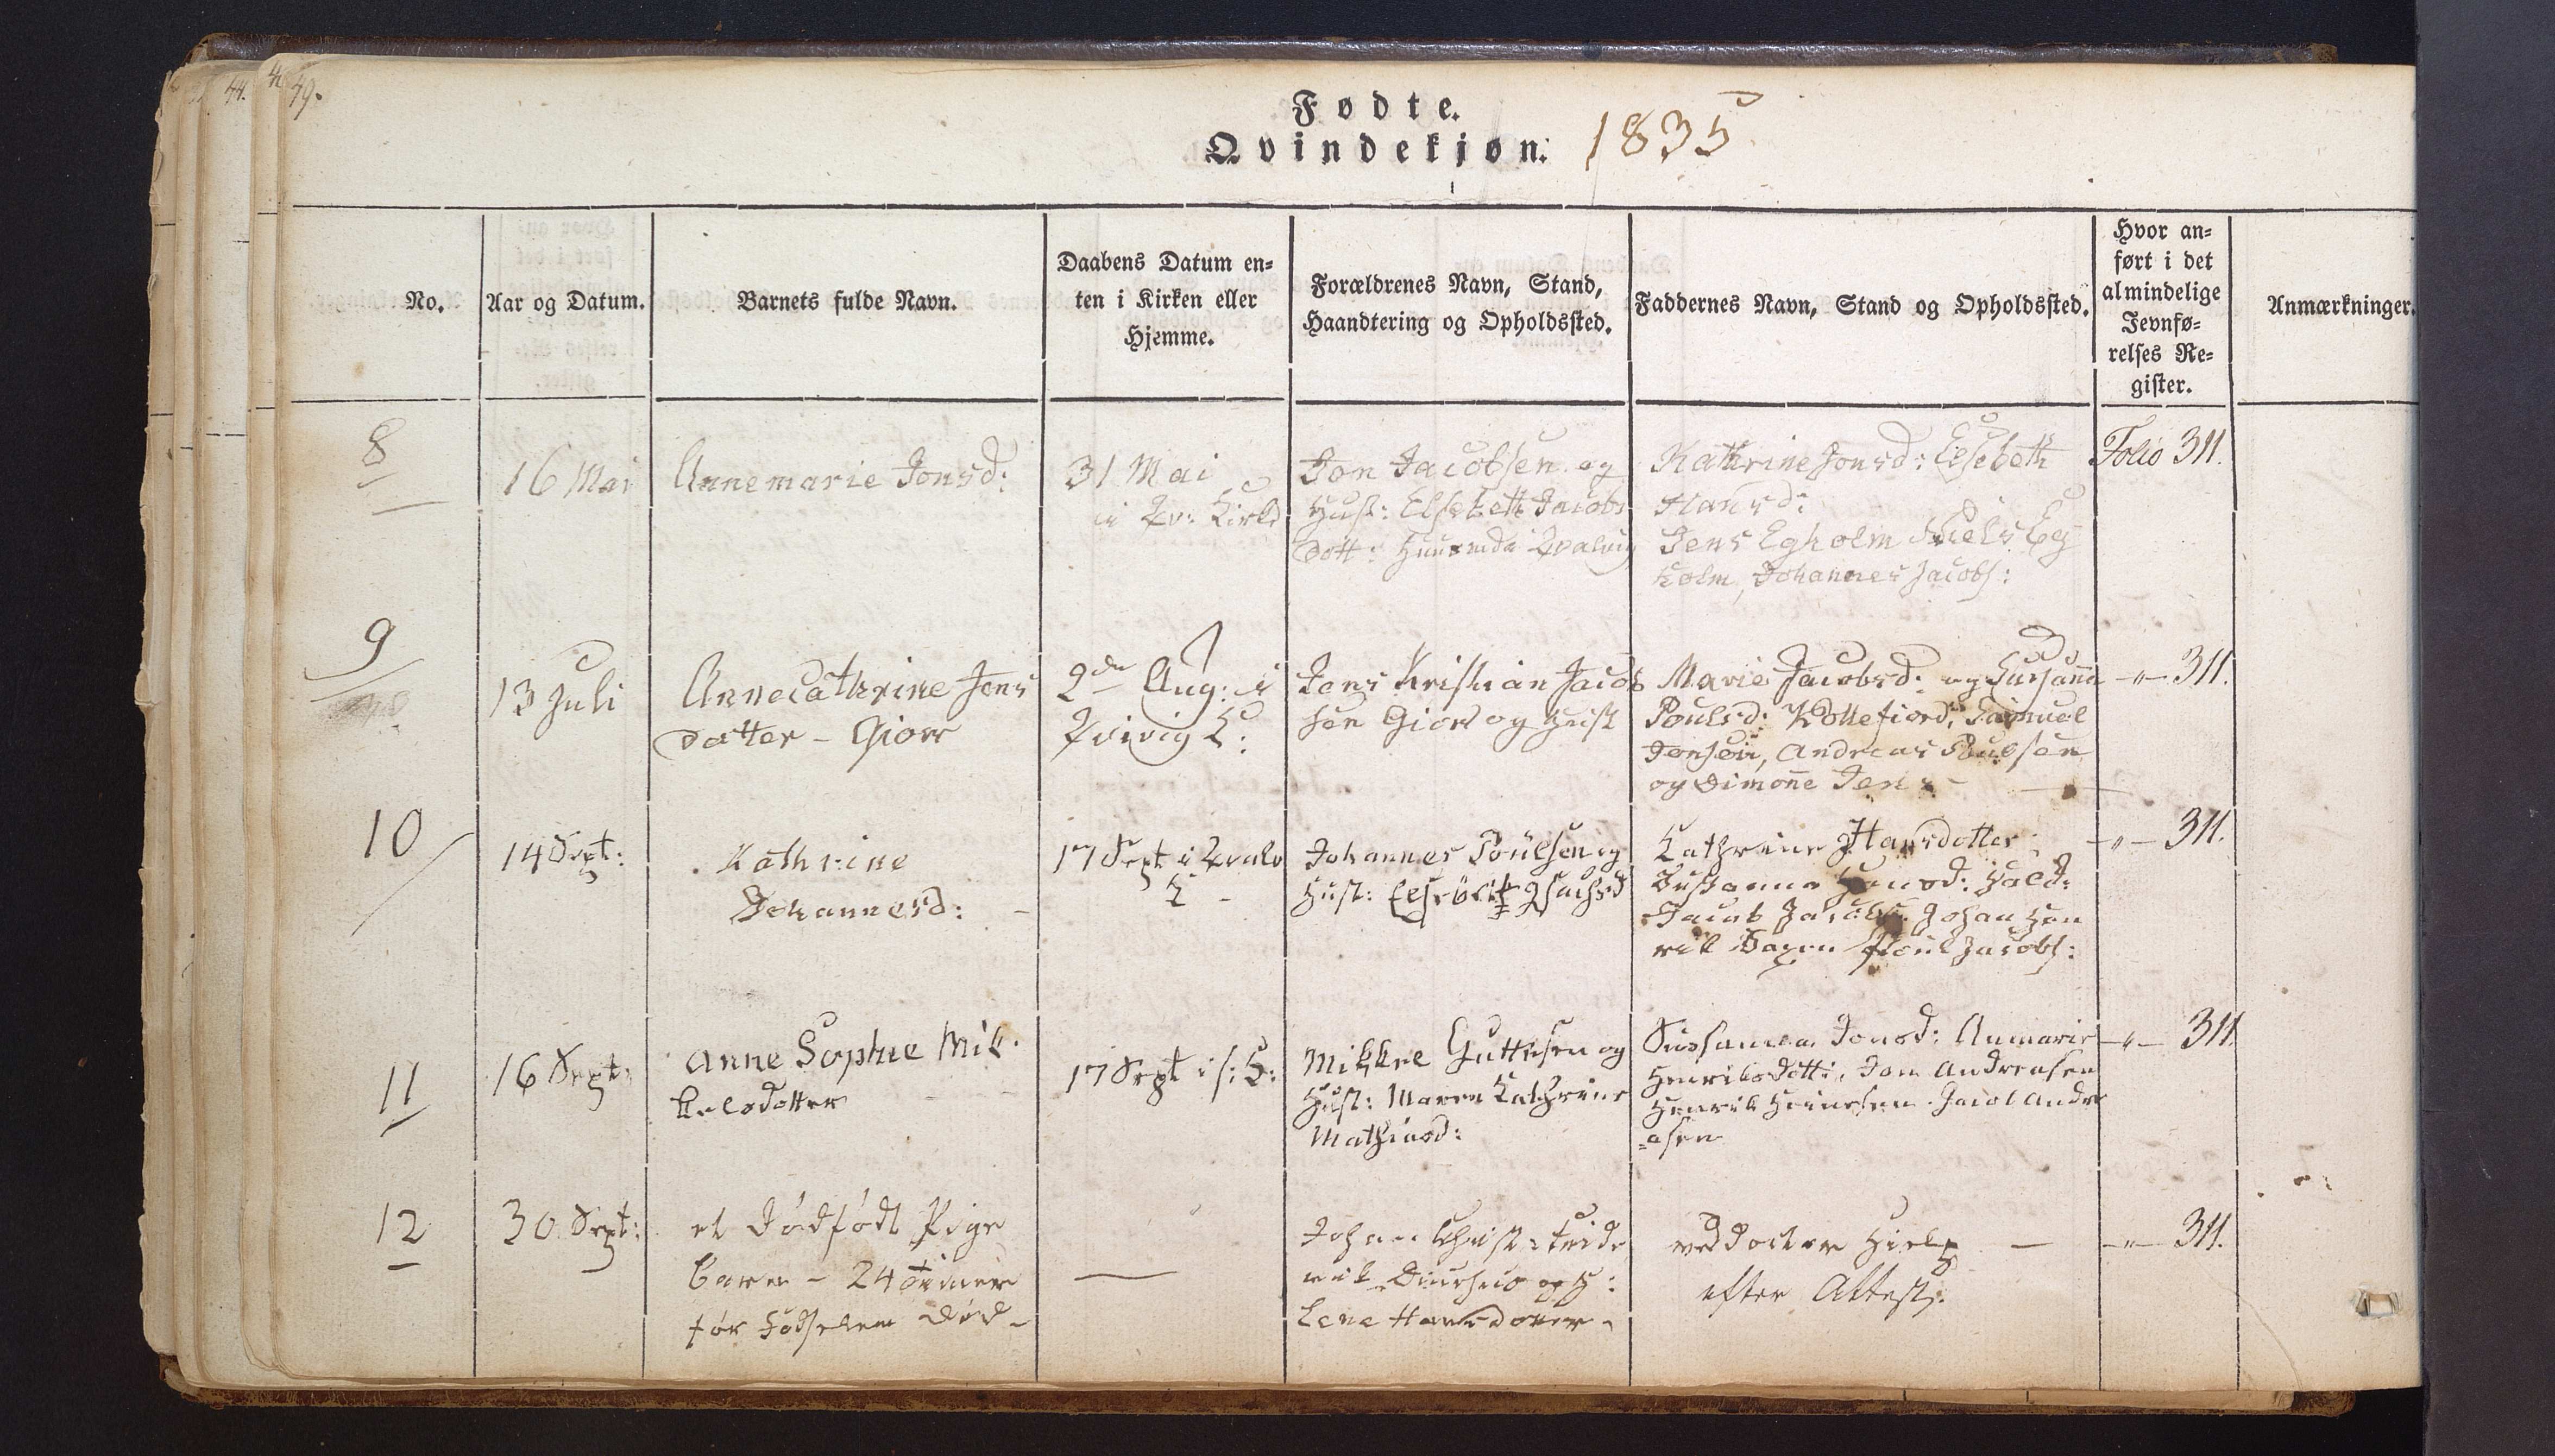 44.
49.
Fødte.
Qvindekjøn. 1835
No.
Aar og Datum.
Barnets fulde Navn.
Daabens Datum en-
ten i Kirken eller
Hjemme.
Forældrenes Navn, Stand,
Haandtering og Opholdssted.
Faddernes Navn, Stand og Opholdssted.
Hvor an-
ført i det
almindelige
Jevnfø-
relses Re-
gister.
Anmærkninger.
8
16 Mai
Annemarie Jonsd:
31 Mai
i Kv: Kirke
Jon Jacobsen og
Hust: Elsebeth Jacobs
dott: Kvalvig
Kathrine Jonsd: Elsebeth
Hansd:
Jens Egholm Niels Eg
holm, Johannes Jacobs:
Folio 311.
9
13 Juli
Annecathrine Jens
datter - Giov
2den Aug: i
Kvivig K:
Jens Kristian Jacob
sen Giov og Hust
Marie Jacobsd: og Susanna
Poulsd: Kollefiord, Samuel
Jonsen, Andreas Poulsen
og Simone Jens -
-"- 311.
10
14 Sept:
Kathrine
Johannesd: -
17 Sept i Kvalv
K -
Johannes Poulsen og
Hust: Elsebeth Isachsd
Cathrine Hansdotter
Susanna Hansd: Hald:
Jacob Jacobs. Johan Hen
rik Poul Jacobs:
-"- 311.
11
16 Sept:
Anne Sophie Mik-
kelsdotter
17 Sept i s: K:
Mikkel Guttesen og
Hust: Maren Kathrine
Mathiasd:
Sussanna Jonsd: Anmarie
Henriksdott:, Jon Andreasen
Henrik Heinesen Jacob Andre
asen
-"- 311.
12
30 Sept:
et dødfødt Pige
barn - 24 Timer
før Fødselen død -
Johan Christ: Fride
rik Diurhus og H:
Lene Hansdotter -
ved Docter Hielp -
efter Attest.
-"- 311.